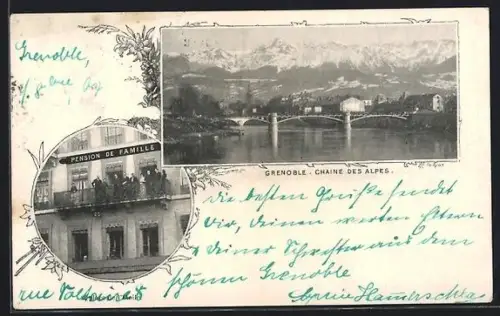 Grenoble,
PENSION DE FAMILLE
GRENOBLE - CHAINE DES ALPES.
die besten Grüße sendet
Dir, deinen werten Eltern
u deiner Schwester aus dem
schönen Grenoble
rue